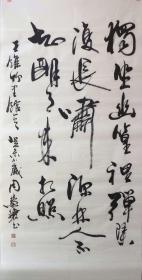 獨坐幽篁裡彈琴
復長嘯深林人不
知明月來相照
王維竹里館